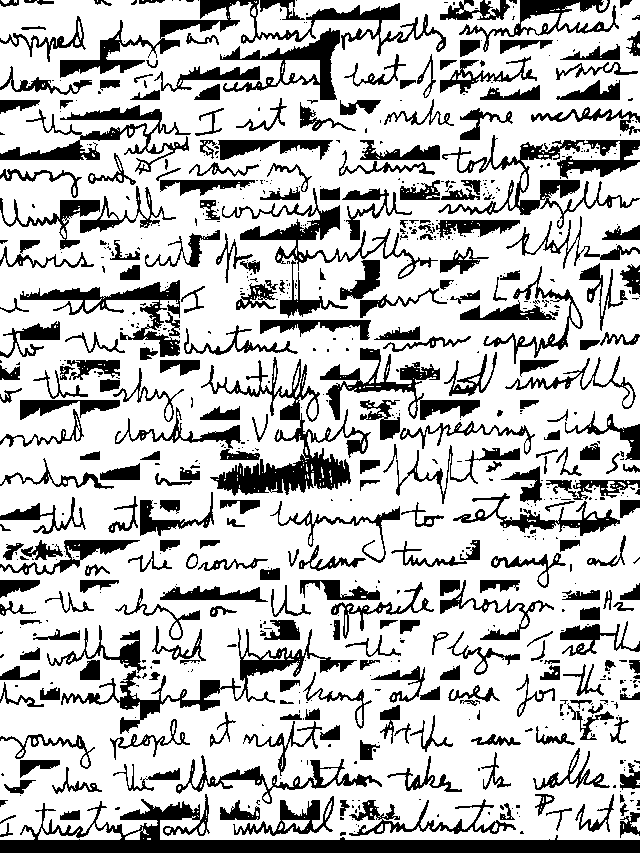 topped by an almost perfectly symmetrical
The ceaseless beat of minute waves
the rocks I sit on, make me increasin
relaxed
owsy and I saw my dreams today
lling hills, covered with small yellow
lowers, cut off abruptly as cliffs
sea I am in awe Looking off
to the distance .... snow capped mo
the sky, beautifully tall smoothly
ormed clouds Vaguely appearing like
ondors in flight. The Su
s still out and is beginning to set. The
now on the Osorno Volcano turns orange, and
the sky on the opposite horizon. As
walk back through the Plaza I see tha
his must be the hang-out area for the
young people at night. At the same time it
is where the older generation takes its walks.
Interesting and unusual combination. That